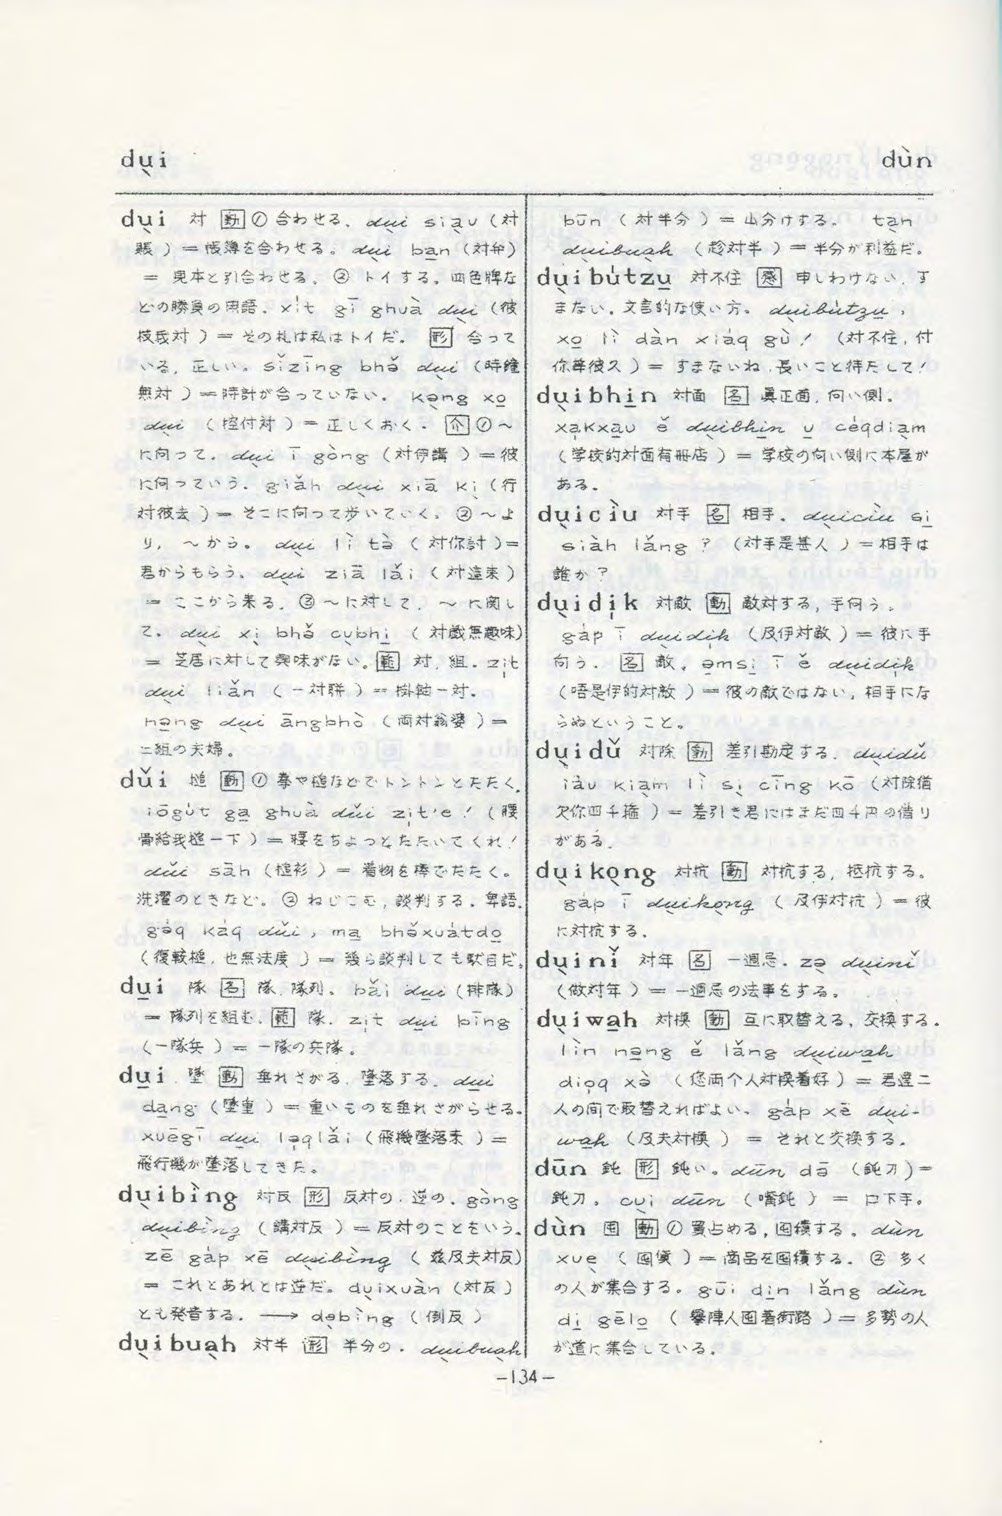 dụi
dùn
dụi 対 動 ① 合わせる. dụi siạu (対
賬) = 帳簿を合わせる。 dụi ban (対弁)
= 見本と引合わせる。 ② トイする. 四色牌な
どの勝負の用語. xit gī ghuà dụi (彼
枝我対) = その札は私はトイだ. 形 合って
いる, 正しい. sǐzīng bhǒ dụi (時鐘
無対) = 時計が合っていない. kǝng xo
dụi (控付対) = 正しくおく. 介 ① ～
に向って. dụi ī gòng (対伊講) = 彼
に向っていう. giǎh dụi xiā kị (行
対彼去) = そこに向って歩いていく。 ② ～よ
り, ～から。 dụi lì tə̀ (対你討) =
君からもらう. dụi ziā lǎi (対這来)
= ここから来る. ③ ～に対して, ～に関し
て. dụi xị bhə̌ cụbhị (対戯無趣味)
= 芝居に対して興味がない. 範 対, 組. zịt
dụi liǎn (一対聯) = 掛軸一対.
nəng dụi āngbhò (両対翁婆) =
二組の夫婦。
dǔi 槌 動 ① 拳や槌などでトントンとたたく.
iōgut ga ghuà dǔi zịt'e ! (腰
骨給我槌一下) = 腰をちょっとたたいてくれ!
dǔi sāh (槌衫) = 着物を棒でたたく。
洗濯のときなど。 ② ねじこむ, 談判する. 卑語.
gəq kàq dǔi, ma bhə̌xuatdo
(復較槌, 也無法度) = 幾ら談判しても駄目だ.
dui 隊 名 隊, 隊列. bǎi dui (排隊)
= 隊列を組む. 範 隊. zịt dui bīng
(一隊兵) = 一隊の兵隊。
dui 墜 動 垂れさがる, 墜落する. dui
dang (墜重) = 重いものを垂れさがらせる.
xuēgī dui lǝqlǎi (飛機墜落来) =
飛行機が墜落してきた。
dụibìng 対反 形 反対の, 逆の. gòng
dụibìng (講対反) = 反対のことをいう.
zē gap xē dụibìng (玆及夫対反)
= これとあれとは逆だ. dụixuàn (対反)
とも発音する. ⟶ dəbìng (倒反)
dụibuạh 対半 形 半分の. dụibuạh
būn (対半分) = 山分けする. tạn
dụibuạh (趁対半) = 半分が利益だ.
dụibutzu 対不住 感 申しわけない, す
まない. 文言的な使い方. dụibutzu,
xo lì dàn xiaq gù ! (対不住, 付
你等彼久) = すまないね, 長いこと待たして!
dụibhin 対面 名 真正面, 向い側.
xakxau ě dụibhin u ceqdiạm
(学校的対面有冊店) = 学校の向い側に本屋が
ある.
dụiciù 対手 名 相手. dụiciù sị
siàh lǎng ? (対手是甚人) = 相手は
誰か?
dụidịk 対敵 動 敵対する, 手向う.
gap ī dụidịk (及伊対敵) = 彼に手
向う. 名 敵. əmsị ī ě dụidịk
(唔是伊的対敵) = 彼の敵ではない, 相手にな
らぬということ。
dụidǔ 対除 動 差引勘定する. dụidǔ
iàu kiạm lì sị cīng ko (対除猶
欠你四千箍) = 差引き君にはまだ四千円の借り
がある.
dụikọng 対抗 動 対抗する, 抵抗する.
gap ī dụikọng (及伊対抗) = 彼
に対抗する.
dụinǐ 対年 名 一週忌. zə dụinǐ
(做対年) = 一週忌の法事をする.
dụiwah 対換 動 互に取替える, 交換する.
lìn nəng ě lǎng dụiwah
dioq xə̀ (恁両个人対換着好) = 君達二
人の間で取替えればよい. gap xē dụi-
wah (及夫対換) = それと交換する.
dūn 鈍 形 鈍い. dūn dō (鈍刀) =
鈍刀. cụi dūn (嘴鈍) = 口下手。
dùn 囤 動 ① 買占める, 囤積する. dùn
xuẹ (囤貨) = 商品を囤積する. ② 多く
の人が集合する. gūi dịn lǎng dùn
dị gēlo (擧陣人囤着街路) = 多勢の人
が道に集合している.
-134-